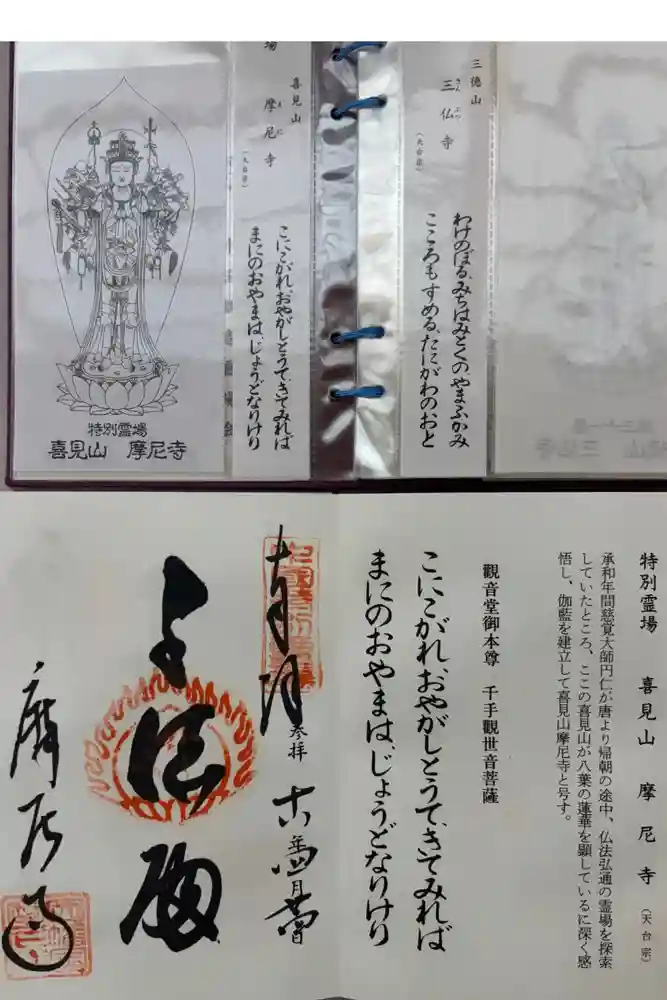 三徳山
三仏寺
さんぶつ
(天台宗)
わけのぼる、みちはみとくのやまふかみ
こころもすめる、たにがわのおと
場
喜見山
摩尼寺
まに
(天台宗)
こにこがれ、おやがしとうて、きてみれば
まにのおやまは、じょうどなりけり
特別霊場
喜見山 摩尼寺
特別霊場 喜見山 摩尼寺 (天台宗)
承和年間慈覚大師円仁が唐より帰朝の途中、仏法弘通の霊場を探索
していたところ、ここの喜見山が八葉の蓮華を顕しているに深く感
悟し、伽藍を建立して喜見山摩尼寺と号す。
觀音堂御本尊 千手觀世音菩薩
こにこがれ、おやがしとうて、きてみれば
まにのおやまは、じょうどなりけり
参拝
摩尼寺